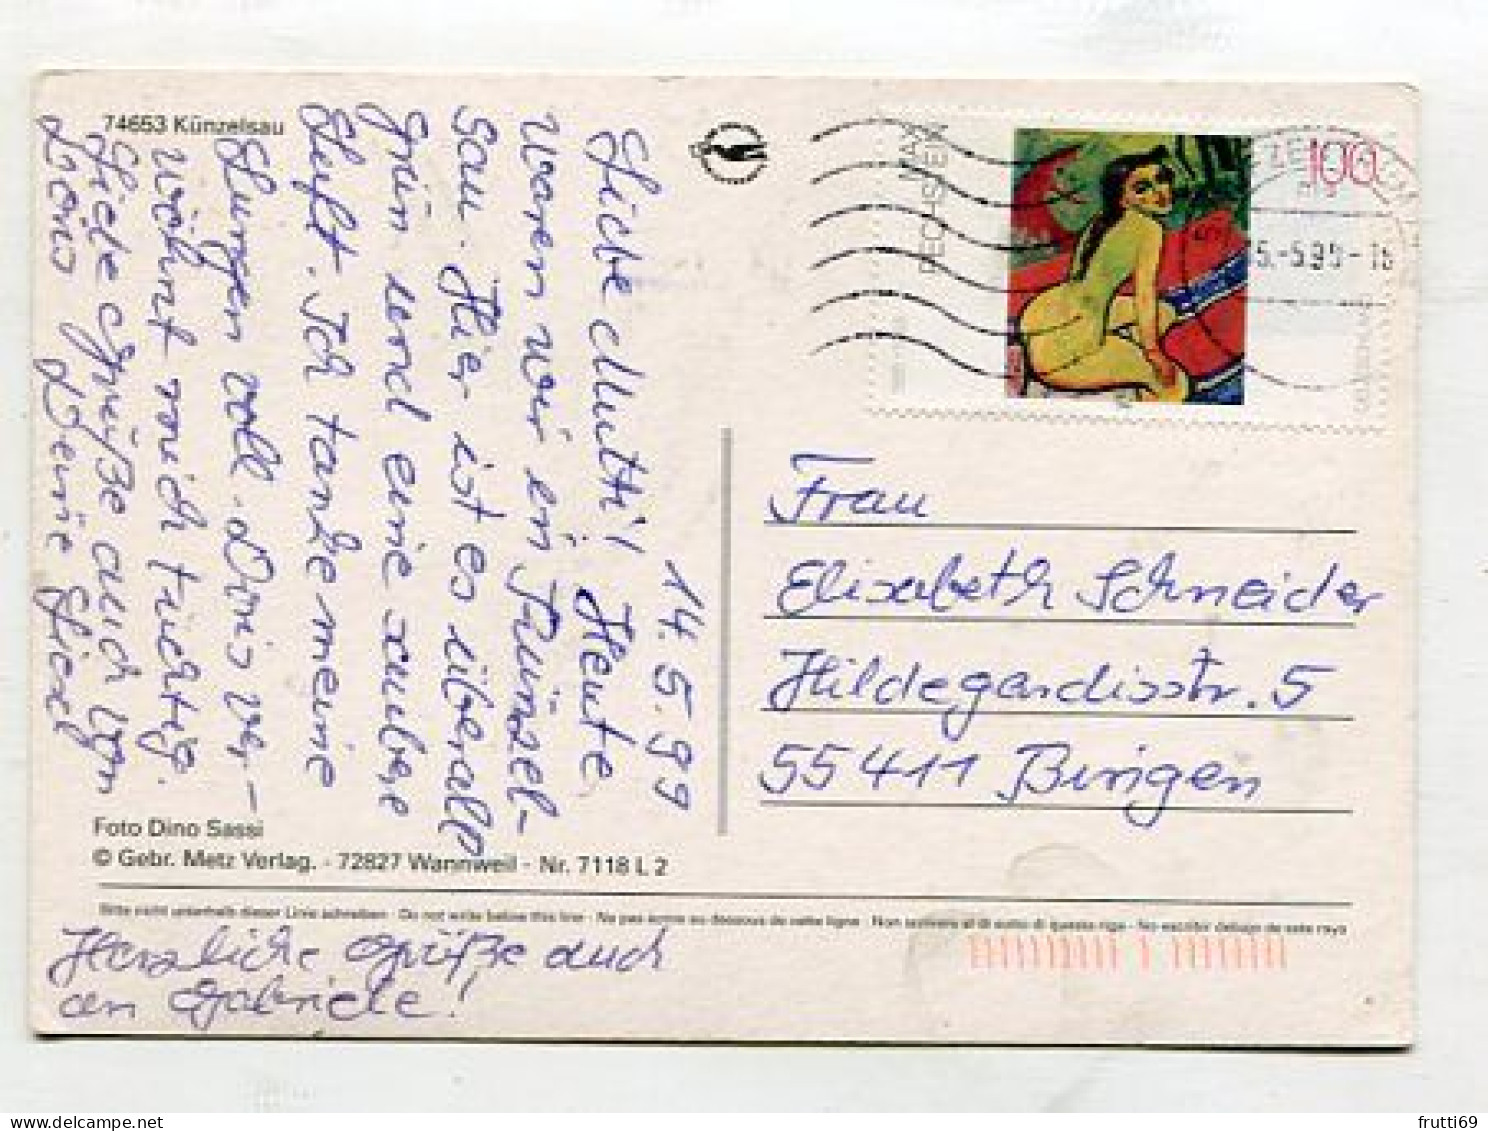 74653 Künzelsau
14.5.99
Liebe Mutti! Heute
waren wir in Künzel-
sau. Hier ist es überall
grün und eine saubere
Luft. Ich tanke meine
Lungen voll. Doris ver-
wöhnt mich richtig.
Viele Grüße auch von
Doris Deine Liesel
Foto Dino Sassi
© Gebr. Metz Verlag. - 72827 Wannweil - Nr. 7118 L 2
Bitte nicht unterhalb dieser Linie schreiben - Do not write below this line - Ne pas écrire au dessous de cette ligne - Non scrivere al di sotto di questa riga - No escribir debajo de este raya
Herzliche Grüße auch
an Gabriele!
MAX
PECHSTEIN
100
5.-5.99-18
Frau
Elisabeth Schneider
Hildegardisstr. 5
55411 Bingen
frutti69